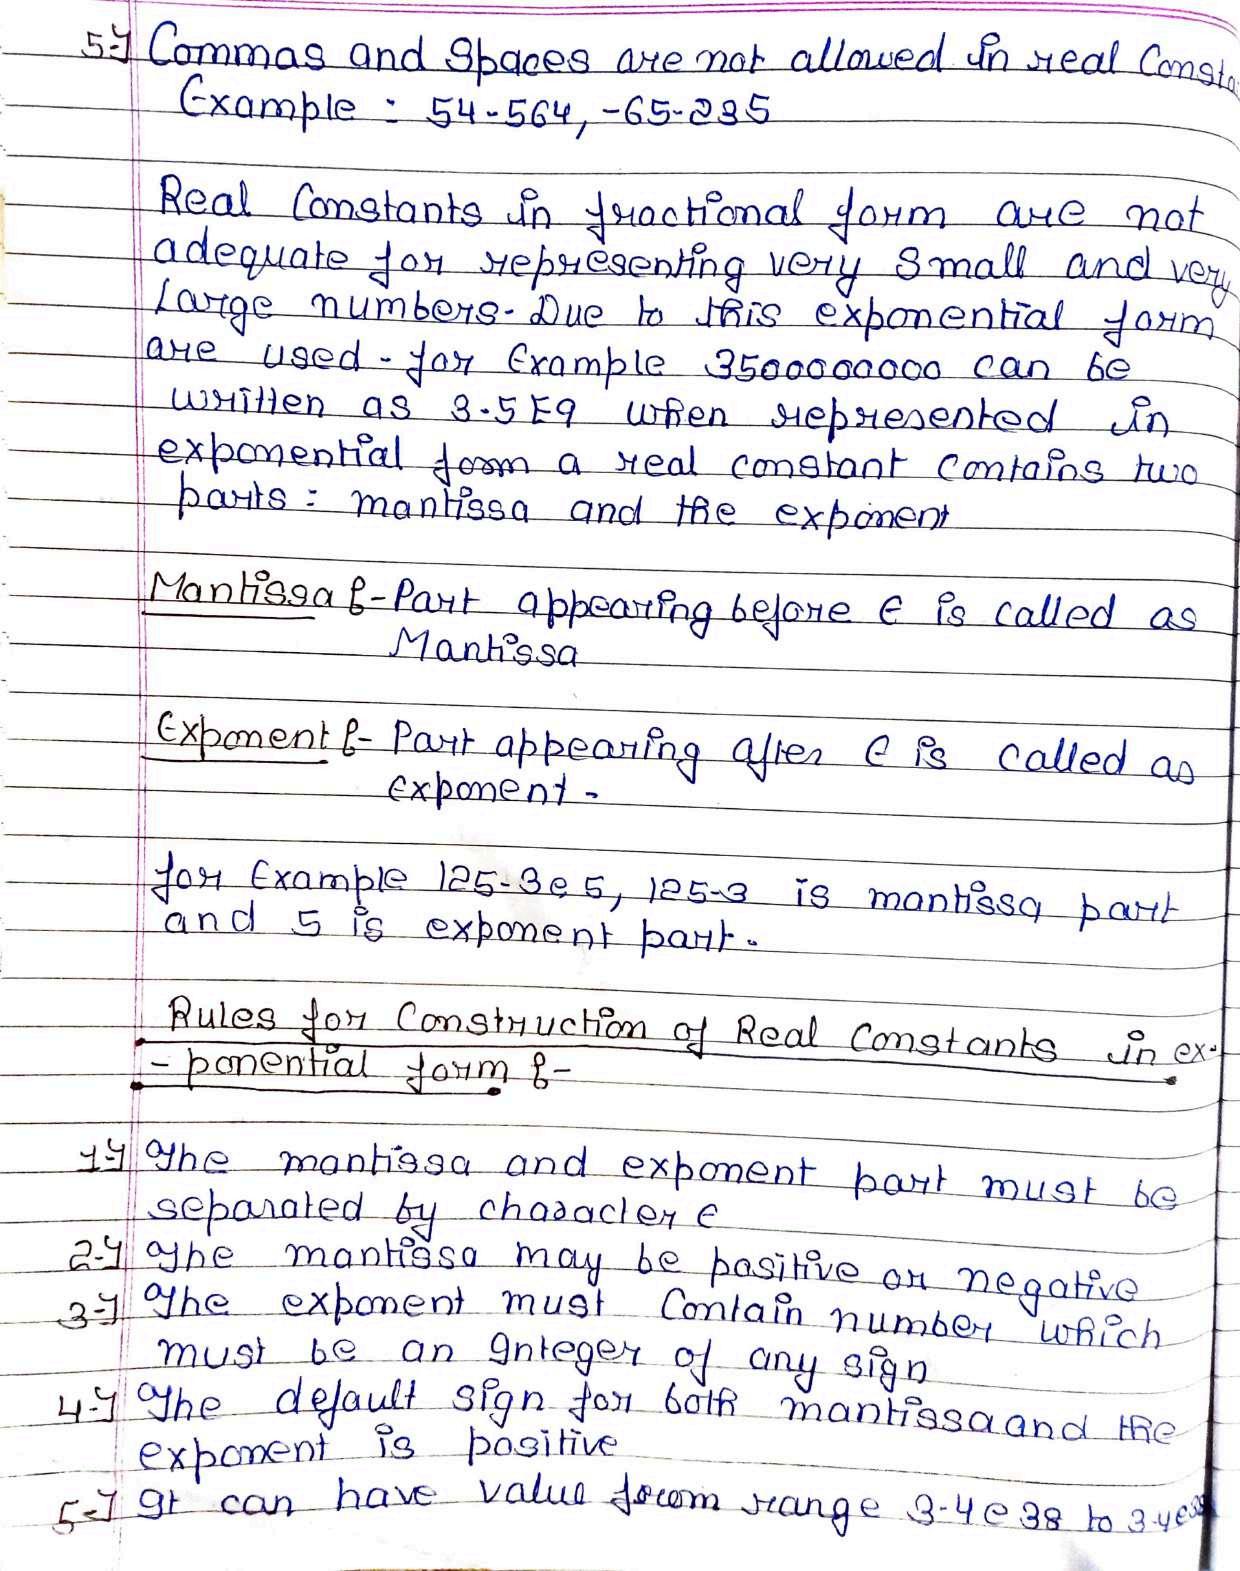 5-) Commas and Spaces are not allowed in real Consta
Example : 54.564, -65.235
Real Constants in fractional form are not
adequate for representing very Small and very
Large numbers. Due to this exponential form
are used. for Example 3500000000 can be
written as 3.5E9 when represented in
exponential form a real constant contains two
parts : mantissa and the exponent
Mantissa :- Part appearing before E is called as
Mantissa
Exponent :- Part appearing after E is called as
Exponent.
for Example 125.3e5, 125.3 is mantissa part
and 5 is exponent part.
Rules for Construction of Real Constants in ex-
- ponential form :-
1-) The mantissa and exponent part must be
separated by character E
2-) The mantissa may be positive or negative
3-) The exponent must Contain number which
must be an Integer of any sign
4-) The default sign for both mantissa and the
exponent is positive
5-) It can have value from range 3.4e38 to 3.4e38